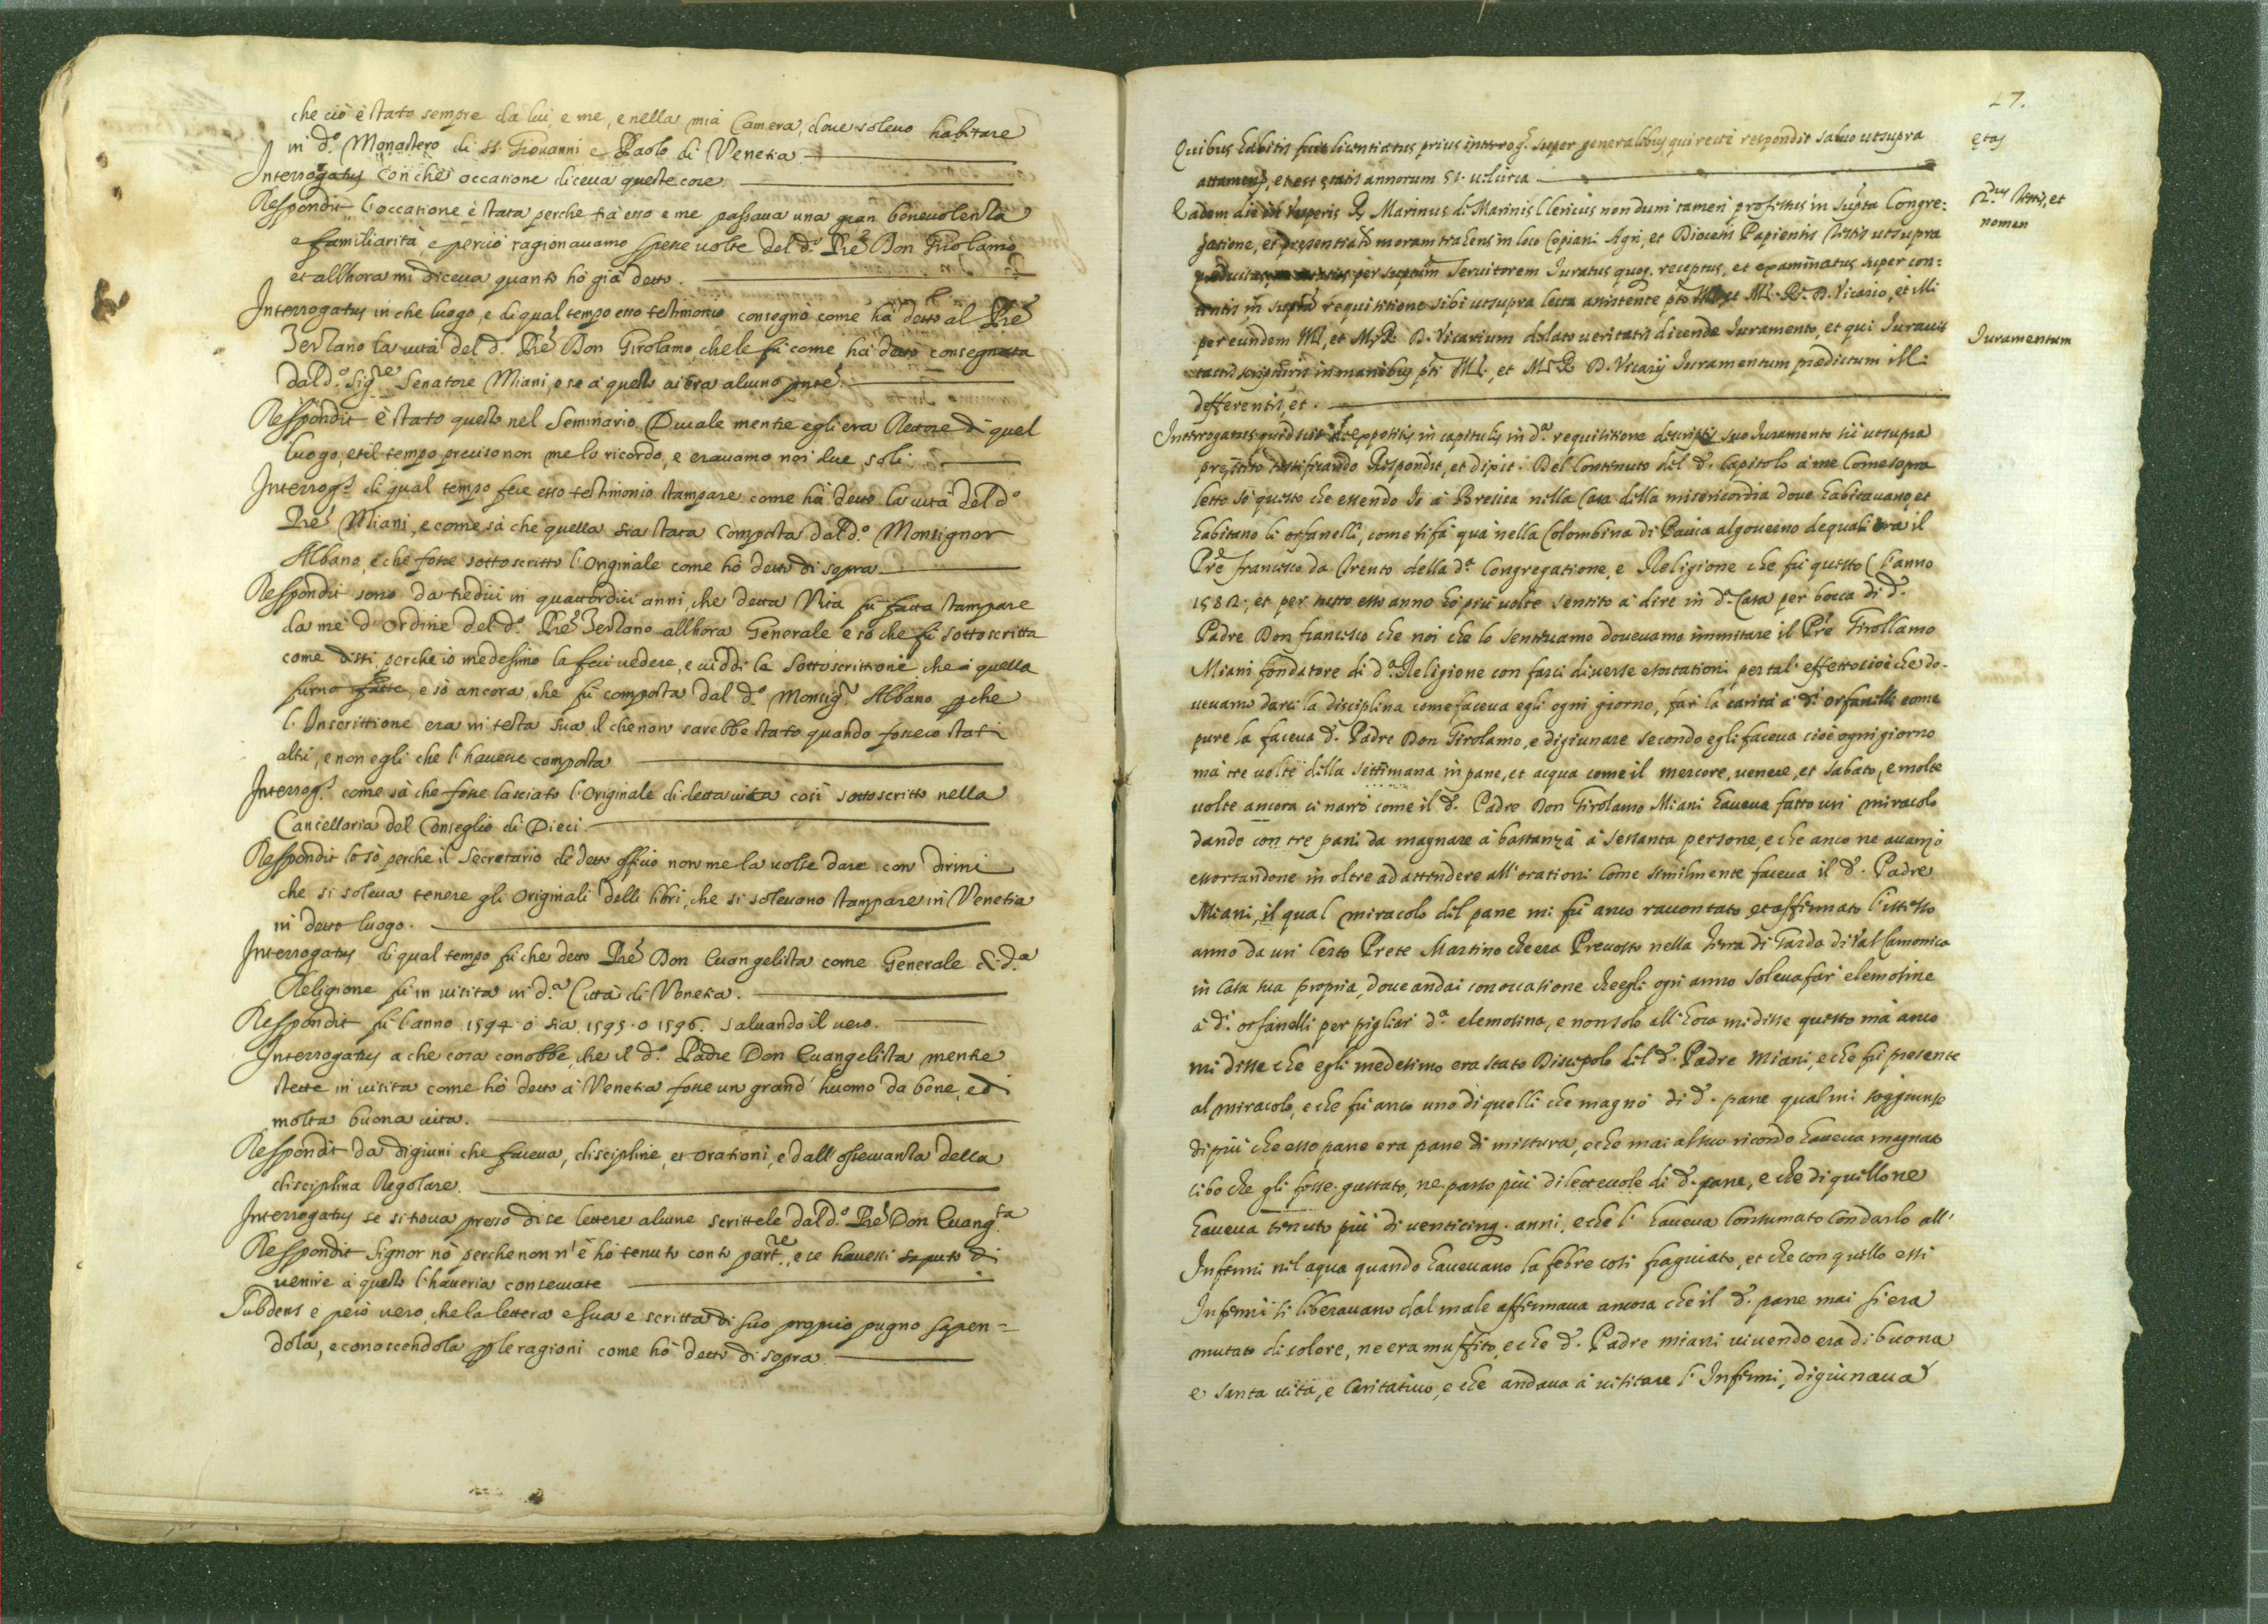 che ciò è stato sempre da lui, e me, e nella mia Camera, doue soleuo habitare
in d.º Monastero di ss. Giouanni e Paolo di Venetia
Interrogatus con che occatione diceua queste cose.
Respondit l'occatione è stata perche frà esso e me passaua una gran beneuolenza
e familiarità, e perciò ragionauamo spesse uolte del d.º Pre Don Girolamo
et allhora mi diceua quanto hò già detto.
Interrogatus in che luogo, e di qual tempo esso testimonio consegnò come hà detto al Pre
Terzano la uita del d. Pre Don Girolamo, che le fù come hà detto consegnata
dal d.º Sig.re Senatore Miani, e se à questo ui era alcuno pnte.
Respondit è stato questo nel Seminario Ducale mentre egli era Rettore di quel
luogo, et il tempo preciso non me lo ricordo, e erauamo noi due soli.
Interrog.s di qual tempo fece esso testimonio stampare come hà detto la uita del d.º
Pre Miani, e come sà che quella sia stata composta dal d.º Monsignor
Albano, e che fosse sottoscritto l'Originale come hò detto di sopra
Respondit sono da tredici in quattordici anni, che detta Vita fù fatta stampare
da me d'ordine del d.º Pre Terzano allhora Generale e sò che fù sottoscritta
come dissi, perche io medesimo la feci uedere, e uiddi la sottoscrittione che à quella
furno fatte, e sò ancora, che fù composta dal d.º Monsig.r Albano pche
l'Inscrittione era in testa sua, il che non sarebbe stato quando fossero stati
altri, e non egli che l'hauesse composta
Interrog.s come sà che fosse lasciato l'Originale di detta uita così sottoscritto nella
Cancellaria del Conseglio di Dieci.
Respondit lo sò, perche il Secretario di detto officio non me la uolse dare con dirmi
che si soleua tenere gli Originali delli libri, che si soleuano stampare in Venetia
in detto luogo.
Interrogatus di qual tempo fù che detto Pre Don Euangelista come Generale di d.a
Religione fù in uisita in d.a Città di Venetia.
Respondit fù l'anno 1594 ò sia 1595. o 1596. saluando il uero.
Interrogatus a che cosa conobbe, che il d.º Padre Don Euangelista mentre
stette in uisita come hò detto à Venetia fosse un grand' huomo da bene, e di
molta buona uita.
Respondit da digiuni che faceua, discipline, et orationi, e dall' osseruanza della
disciplina Regolare.
Interrogatus se si troua presso di se lettere alcune scrittele dal d.º Pre Don Euang.sta
Respondit Signor nò perche non n'è hò tenuto conto part.re, e se hauessi saputo di
uenire à questo l'haueria conseruate
Subdens è però uero, che la lettera è sua e scritta di suo proprio pugno sapen=
dola, e conoscendola p le ragioni come hò detto di sopra
27.
Quibus habitis fuit licentiatus prius interrog.s super generalibus, qui recte respondit saluo utsupra
attamen, et est ętatis annorum 51. uel circa
ętas
Eadem die in Vesperis R. Marinus di Marinis Clericus nondum tamen professus in supta Congre:
gatione, et presentialr moram trahens in loco Copiani Agri, et Diocesis Papiensis testis utsupra
per suptum Seruitorem Iuratus quoq. receptus, et examinatus super con:
tentis in supta requisitione sibi utsupra lecta assistente pto Ill. et M. R. D. Vicario, et illi
per eundem Ill, et M. R. D. Vicarium delato ueritatis dicende Iuramento, et qui Iurauit
tactis scripturis in manibus pti Ill. et M. R. D. Vicarij Iuramentum prædictum Ill:
defferentis, et.
2.dus testis, et
nomen
Iuramentum
Interrogatus quid sciat de expositis in capitulis in d.a requisitione descriptis suo Iuramento sic utsupra
prestito testificando Respondit, et dixit. Del Contenuto del d. Capitolo à me come sopra
letto sò questo che essendo Io à Bressa nella Casa della misericordia doue habitauano, et
habitano li orfanelli, come si fà quà nella Colombina di Pauia al gouerno de quali era il
Pre Francesco da Trento della d.a Congregatione, e Religione che fù questo l'anno
1582, et per tutto esso anno hò più uolte sentito à dire in d.a Casa per bocca di d.
Padre Don francesco che noi che lo sentiuamo doueuamo immitare il Pre Girollamo
Miani fondatore di d.a Religione con farci diuerse esortationi per tal' effetto cioè che do-
ueuamo darci la disciplina come faceua egli ogni giorno, far la carità à d.i orfanelli come
pure la faceua d. Padre Don Girolamo, e digiunare secondo egli faceua cioè ogni giorno
mà tre uolte della settimana in pane, et acqua come il mercore, uenere, et sabato, e molte
uolte ancora ci narrò come il d. Padre Don Girolamo Miani haueua fatto un miracolo
dando con tre pani da magnare à bastanza à sessanta persone, e che anco ne auanzò
essortandone in oltre ad attendere all' orationi come similmente faceua il d. Padre
Miani, il qual miracolo del pane mi fù anco raccontato et affirmato l'istesso
anno da un certo Prete Martino che era Preuosto nella Terra di Garda di Val Camonica
in Casa sua propria, doue andai con occasione che egli ogni anno soleua far elemosine
à d.i orfanelli per pigliar d.a elemosina, e non solo all' hora mi disse questo mà anco
mi disse che egli medesimo era stato Discepolo del d. Padre Miani, e che fù presente
al miracolo, e che fù anco uno di quelli che magnò di d. pane qual mi soggiunse
di più che esso pane era pane di mistura, e che mai al suo ricordo haueua magnato
cibo che gli fosse gustato, ne parso più diletteuole di d. pane, e che di quello ne
haueua tenuto più di uenticinq. anni, e che l'haueua consumato con darlo all'
Infermi nel aqua quando haueuano la febre così fragniato, et che con quello essi
Infermi si liberauano dal male affirmaua ancora che il d. pane mai si era
mutato di colore, ne era muffito, e che d. Padre Miani uiuendo era di buona
e santa uita, e caritatiuo, e che andaua à uisitare l'Infermi, digiunaua